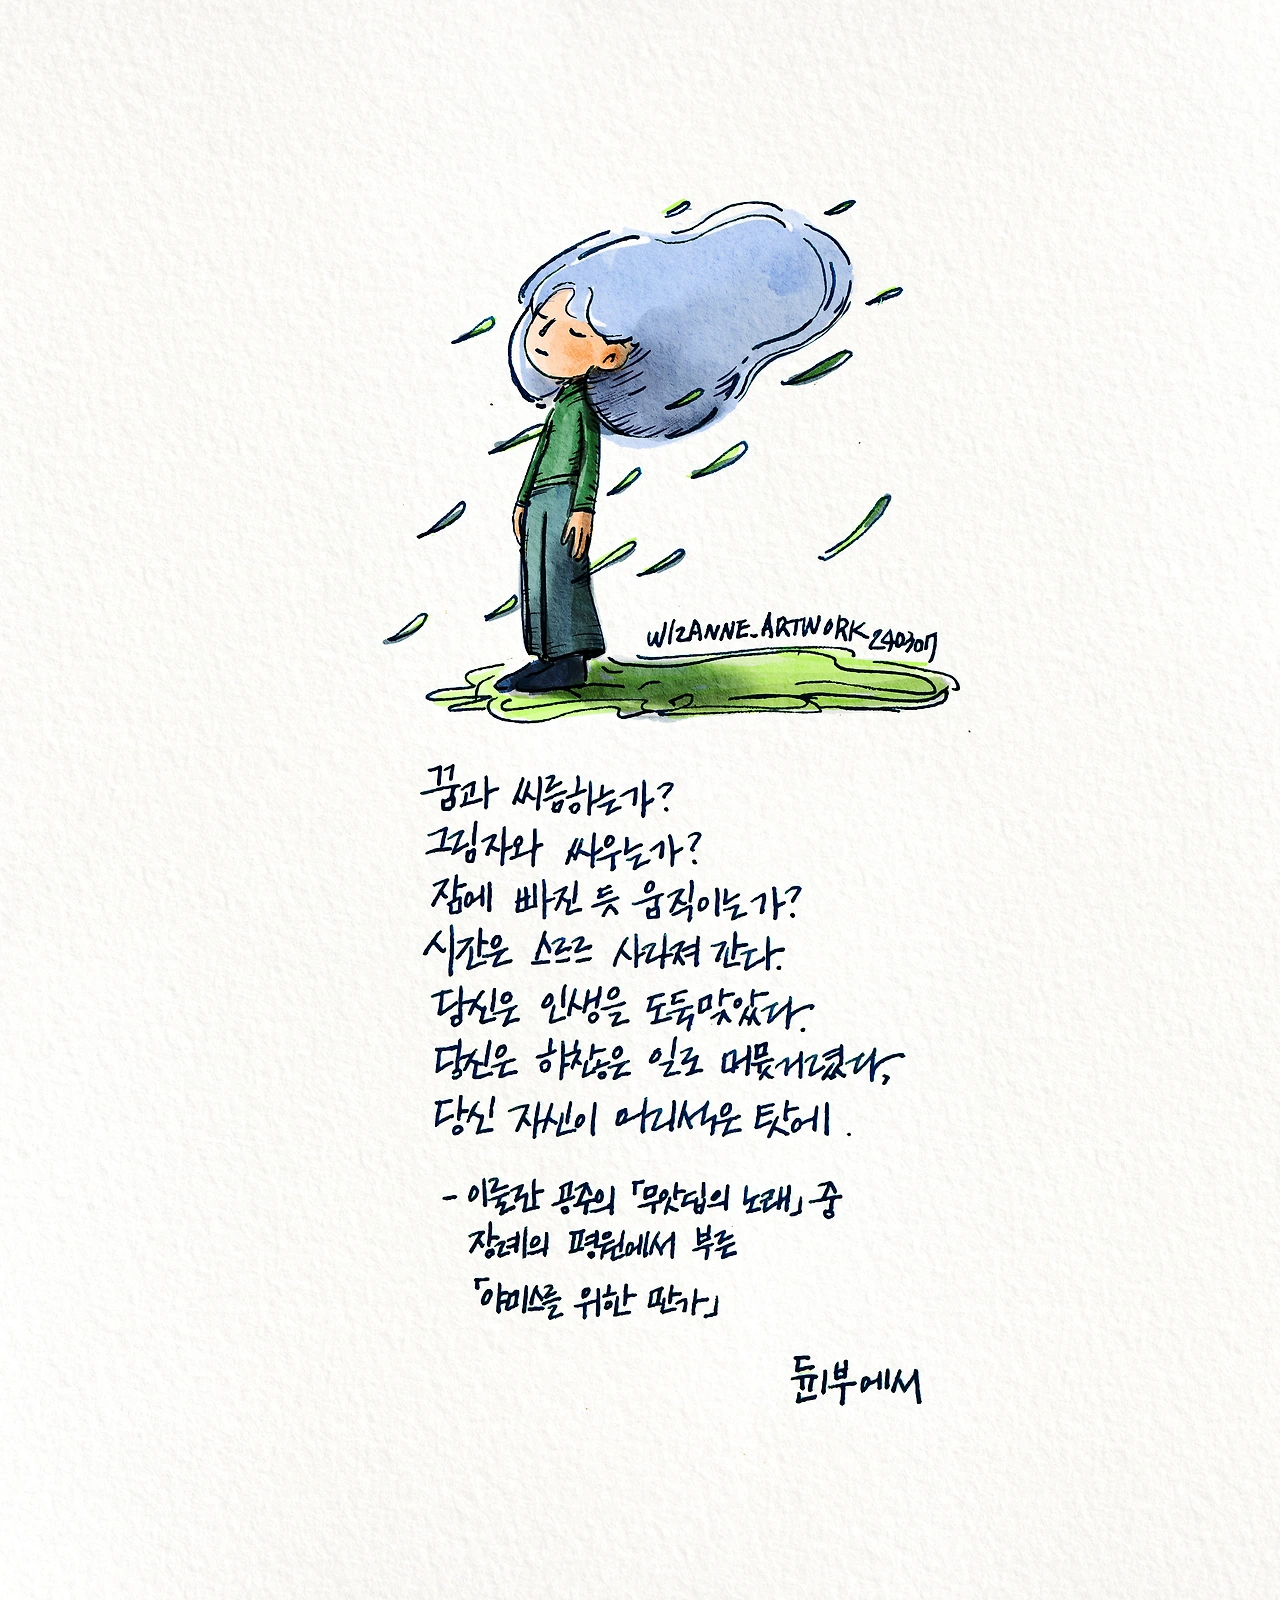 WIZANNE_ARTWORK 240307
꿈과 씨름하는가?
그림자와 싸우는가?
잠에 빠진 듯 움직이는가?
시간은 스르르 사라져 간다.
당신은 인생을 도둑맞았다.
당신은 하찮은 일로 머뭇거렸다,
당신 자신이 어리석은 탓에.
- 이룰란 공주의 「무앗딥의 노래」 중
장례의 평원에서 부른
「야미스를 위한 만가」
듄1부에서